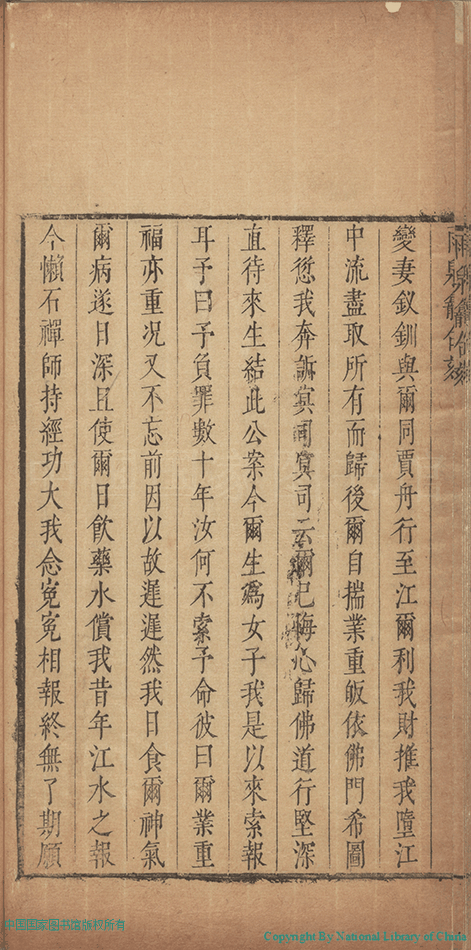 變妻釵釧與爾同賈舟行至江爾利我財推我墮江
中流盡取所有而歸後爾自揣業重皈依佛門希圖
釋愆我奔訴冥司冥司云爾已悔心歸佛道行堅深
直待來生結此公案今爾生為女子我是以來索報
耳予曰予負罪數十年汝何不索予命彼曰爾業重
福亦重况又不忘前因以故遲遲然我日食爾神氣
爾病遂日深且使爾日飲藥水償我昔年江水之報
今懶石禪師持經功大我念寃寃相報終無了期願
中国国家图书馆版权所有
Copyright By National Library of China